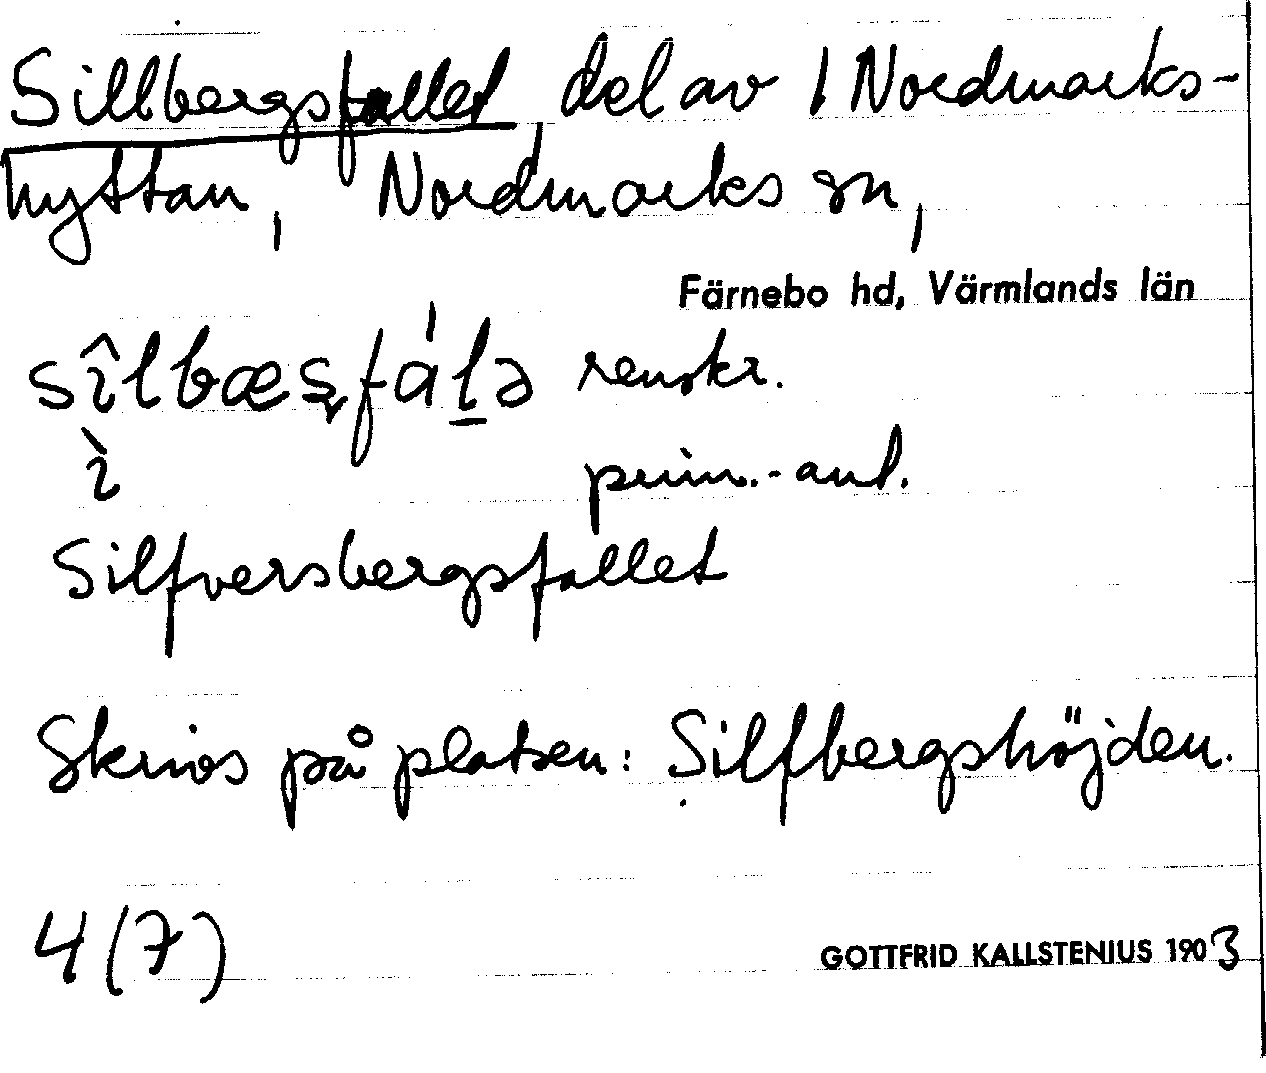 Sillbergsfallet, del av 1 Nordmarks-
hyttan, Nordmarks sn,
Färnebo hd, Värmlands län
sîlbæşfáḻə renskr.
ì prim.-ant.
Silfversbergsfallet
Skrivs på platsen: Silfbergshöjden.
4 (7) GOTTFRID KALLSTENIUS 1903